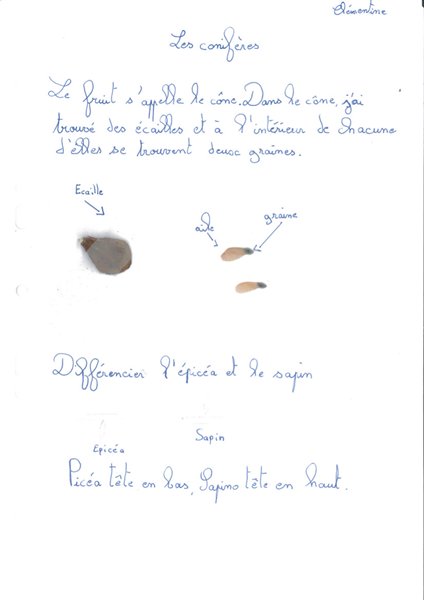 Clémentine
Les conifères
Le fruit s'appelle le cône. Dans le cône, j'ai
trouvé des écailles et à l'intérieur de chacune
d'elles se trouvent deux graines.
Ecaille
aile
graine
Différencier l'épicéa et le sapin
Sapin
Epicéa
Picéa tête en bas, Sapino tête en haut.